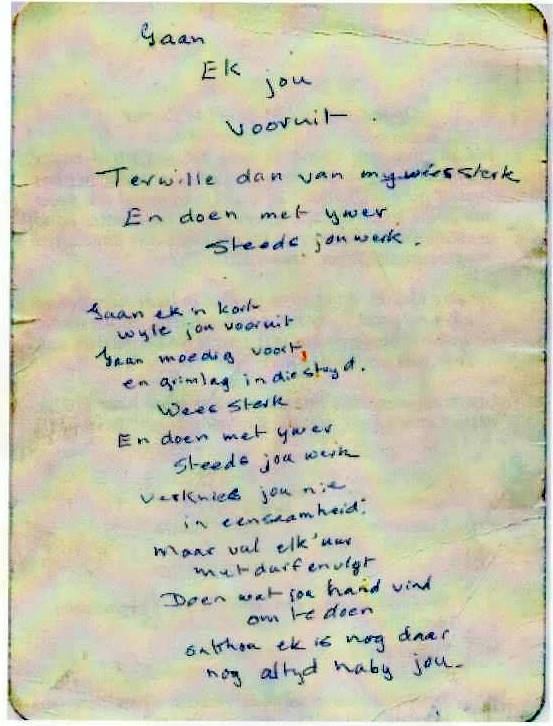 Gaan
Ek jou
vooruit.
Terwille dan van my wees sterk
En doen met ywer
Steeds jou werk.
Gaan ek 'n kort
wyle jou vooruit
Gaan moedig voort,
en grimlag in die stryd.
Wees Sterk
En doen met ywer
Steeds jou werk
Verknies jou nie
in eensaamheid:
maar vul elk uur
met durf en vlyt
Doen wat jou hand vind
om te doen
onthou ek is nog daar
nog altyd naby jou.